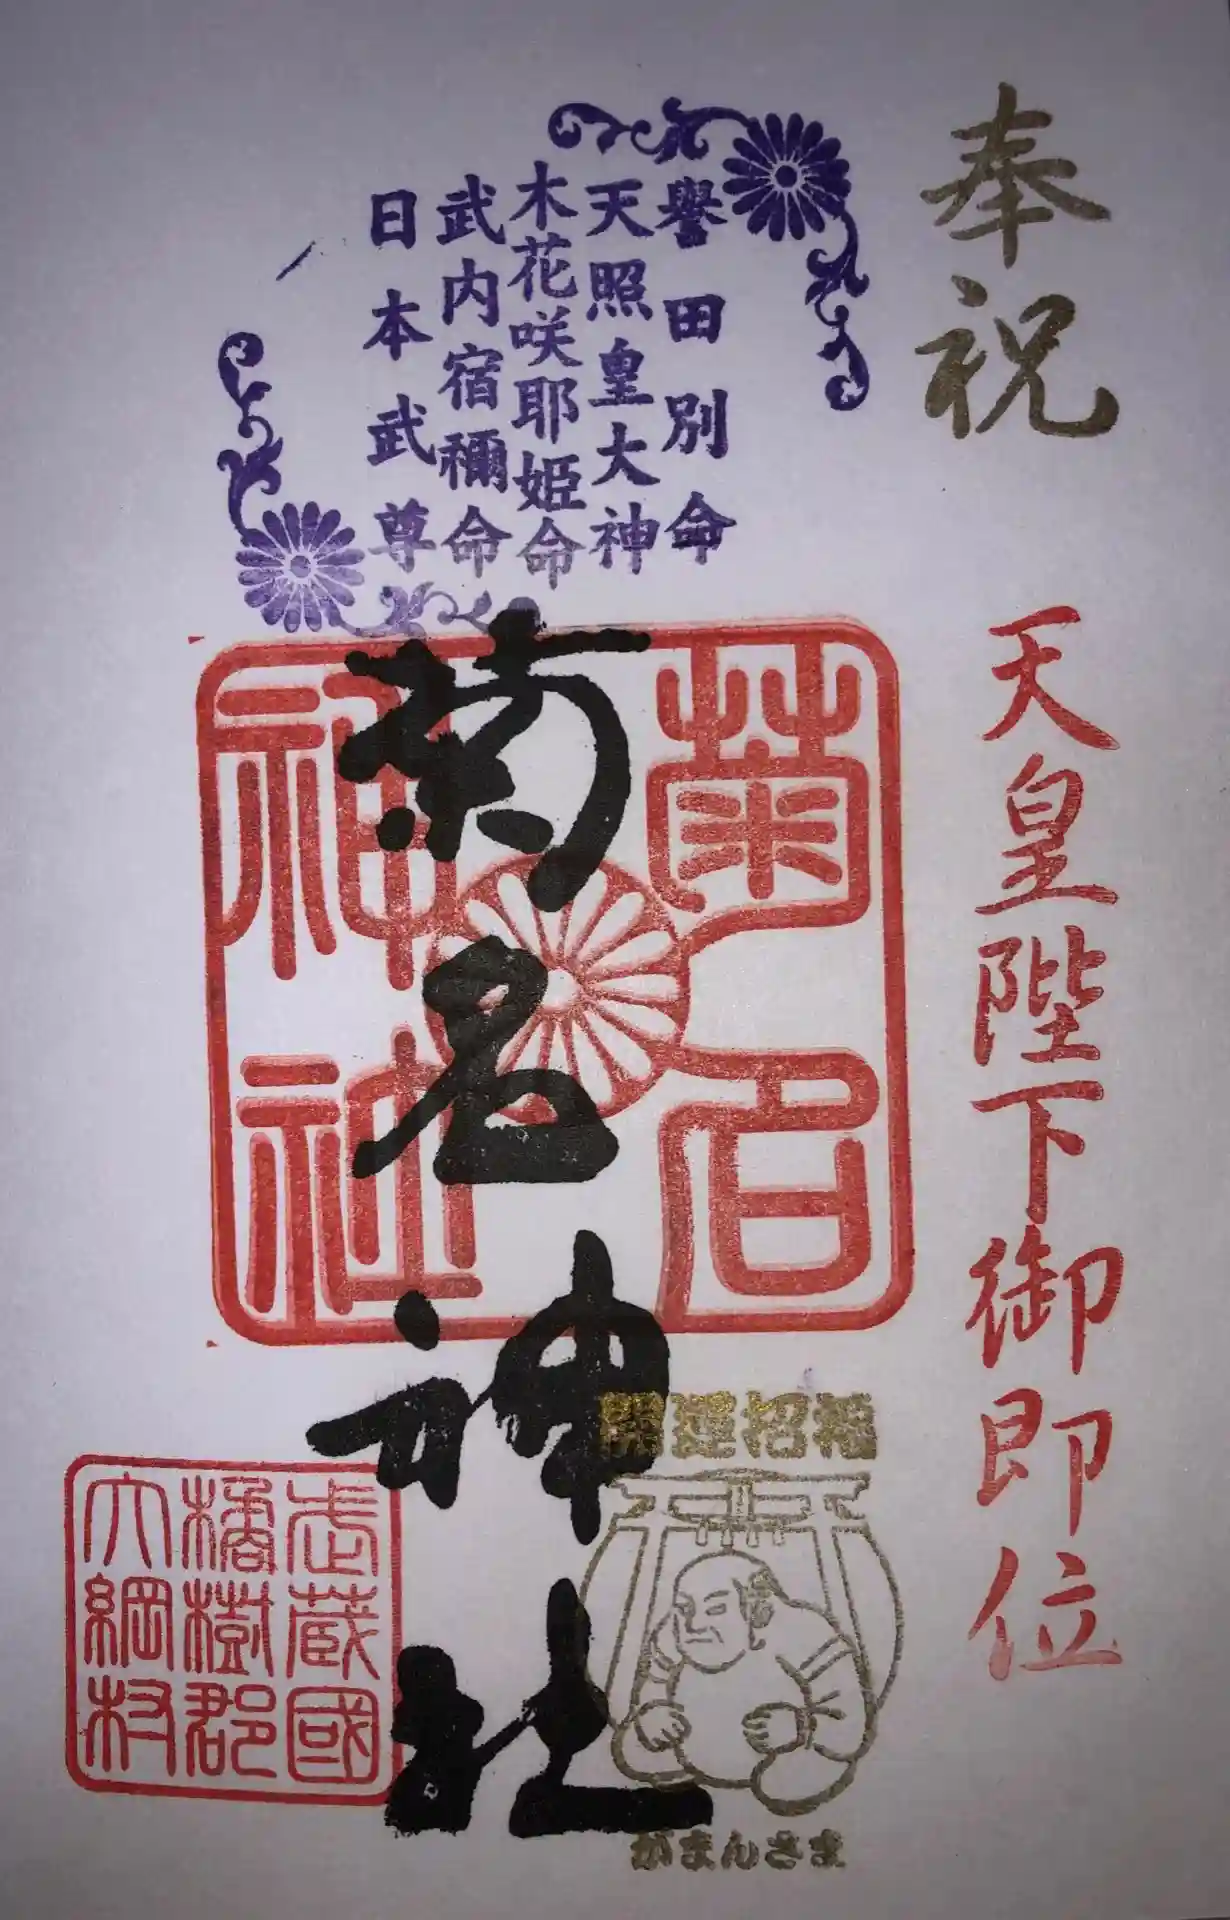 奉祝
天皇陛下御即位
譽田別命
天照皇大神
木花咲耶姫命
武内宿禰命
日本武尊
菊名
神社
菊名神社
開運招福
がまんさま
武蔵國
橘樹郡
大綱村